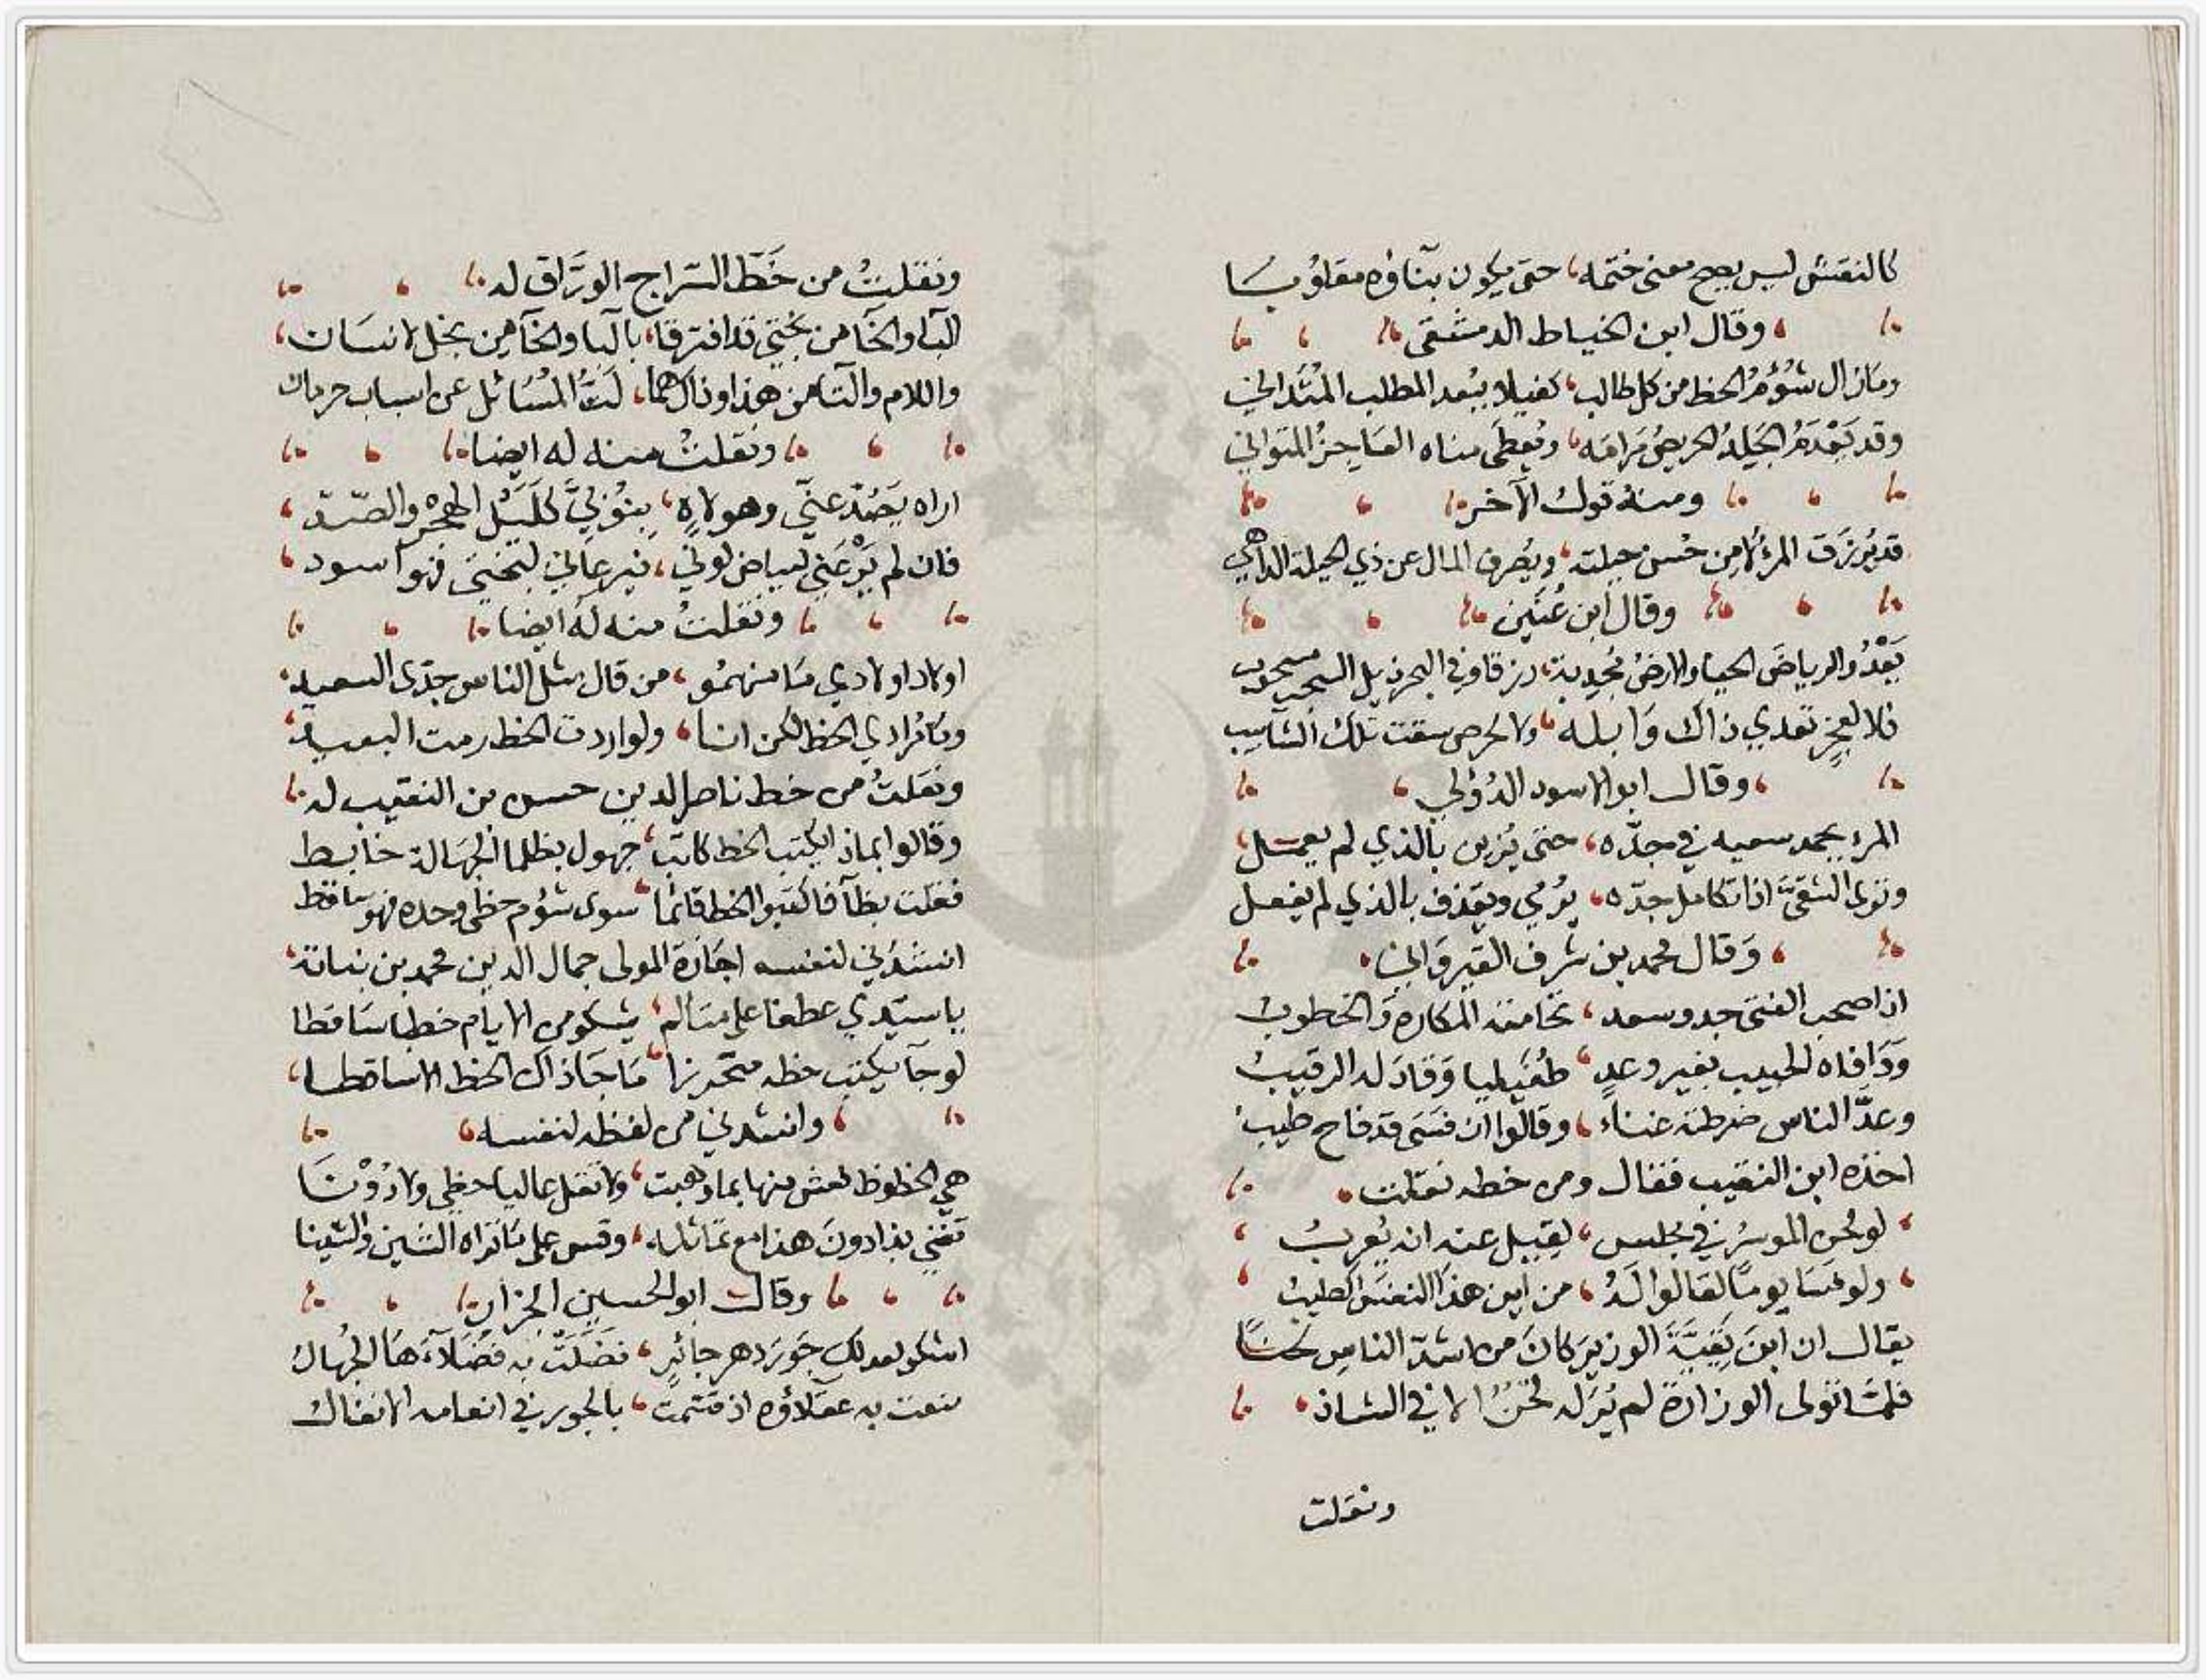 كالنقش ليس يصح معنى ختمه، حتى يكون بناؤه مقلوبا
وقال ابن الخياط الدمشقي
وما زال شؤم الحظ من كل طالب، كفيلا ببعد المطلب المتداني
وقد يحرم الجلد الحريص مرامه، ويعطى مناه العاجز المتواني
ومنه قول الآخر
قد يرزق المرء لا من حسن حيلته، ويصرف المال عن ذي الحيلة الداهي
وقال ابن عنين
يعدو الرياض الحيا والارض مجدبة، رزقا وفي البحر ذيل السحب مسحوب
فلا لعجز تعدي ذاك وابله، ولا لحرص سقت تلك الشآبيب
وقال ابو الاسود الدؤلي
المرء يحمد سعيه في جده، حتى يزين بالذي لم يعمل
وترى الشقي اذا تكامل جده، يرمى ويقذف بالذي لم يفعل
وقال محمد بن شرف القيرواني
اذا صحب الفتى جد وسعد، تحامته المكاره والخطوب
ووافاه الحبيب بغير وعد، طفيليا وقاد له الرقيب
وعد الناس ضرطته غناء، وقالوا ان فسى قد فاح طيب
اخذه ابن النقيب فقال ومن خطه نقلت
لو لحن الموسر في مجلس، لقيل عنه انه يعرب
ولو فسا يوما لقالوا له، من اين هذا النفس الطيب
يقال ان ابن بقية الوزير كان من اشد الناس لحنا
فلما تولى الوزارة لم ير له لحن الا في الشاذ
ونقلت
ونقلت من خط السراج الوراق له
الباء والخا من بختي قد افترقا، بالبا والخا من بخل لانسان
واللام والتا من هذا وذاك هما، لت المسائل عن اسباب حرمان
ونقلت منه له ايضا
اراه يصد عني وهو لاه، بنوزي كليل الهجر والصد
فان لم يرعني لبياض لوني، فيرعاني لبختي فهو اسود
ونقلت منه له ايضا
اولاد اولادي ما منهمو، من قال مثل الناس جدي السعيد
وما مرادي الحظ لكن انسا، ولو اردت الحظ رمت البعيد
ونقلت من خط ناصر الدين حسن بن النقيب له
وقالوا بماذا يكتب الحظ كاتب، جهول بظلما الجهالة خابط
فقلت بظا فاكتبوا الحظ قائما، سوى شؤم حظي وحده فهو ساقط
انشدني لنفسه اجازة المولى جمال الدين محمد بن نباتة
يا سيدي عطفا على متالم، يشكو من الايام حظا ساقطا
لو جا يكتب حظه متحرزا، ما جا ذاك الحظ الا ساقطا
وانشدني من لفظه لنفسه
هي الحظوظ فعش منها بما وهبت، ولا تقل عاليا حظي ولا دونا
تفنى بذا دون هذا مع تماثله، وقس على ما تراه السين والشينا
وقال ابو الحسين الجزار
اشكو لعدلك جور دهر جائر، فضلت به فضلاءها الجهال
منعت به عقلاؤه اذ قتمت، بالجور في انعامه الانفال